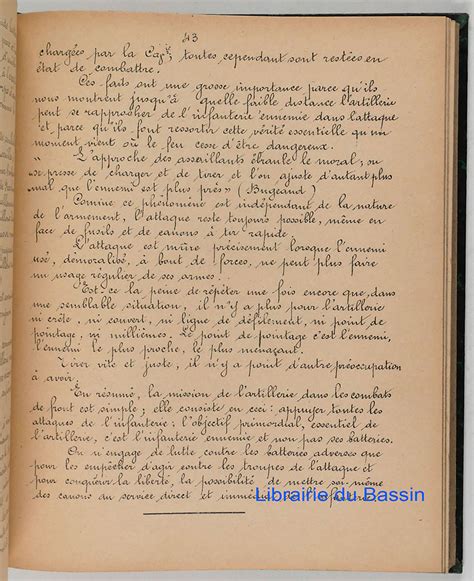 43
chargées par la Cavie, toutes cependant sont restées en
état de combattre.
Ces faits ont une grosse importance parce qu'ils
nous montrent jusqu'à quelle faible distance l'artillerie
peut se rapprocher de l'infanterie ennemie dans l'attaque
et parce qu'ils font ressortir cette vérité essentielle qu'un
moment vient où le feu cesse d'être dangereux.
"L'approche des assaillants ébranle le moral; on
se presse de charger et de tirer et l'on ajuste d'autant plus
mal que l'ennemi est plus près" (Bugeaud)
Comme ce phénomène est indépendant de la nature
de l'armement, l'attaque reste toujours possible, même en
face de fusils et de canons à tir rapide.
L'attaque est mûre précisément lorsque l'ennemi
usé, démoralisé, à bout de forces, ne peut plus faire
un usage régulier de ses armes.
Est-ce la peine de répéter une fois encore que, dans
une semblable situation, il n'y a plus pour l'artillerie
ni crête, ni couvert, ni ligne de défilement, ni point de
pointage, ni millièmes. Le point de pointage c'est l'ennemi,
l'ennemi le plus proche, le plus menaçant.
Tirer vite et juste, il n'y a point d'autre préoccupation
à avoir.
En résumé, la mission de l'artillerie dans les combats
de front est simple; elle consiste en ceci: appuyer toutes les
attaques de l'infanterie: l'objectif primordial, essentiel de
l'artillerie, c'est l'infanterie ennemie et non pas ses batteries.
On n'engage de lutte contre les batteries adverses que
pour les empêcher d'agir contre les troupes de l'attaque et
pour conquérir la liberté, la possibilité de mettre soi-même
des canons au service direct et immédiat de l'infanterie.
Librairie du Bassin